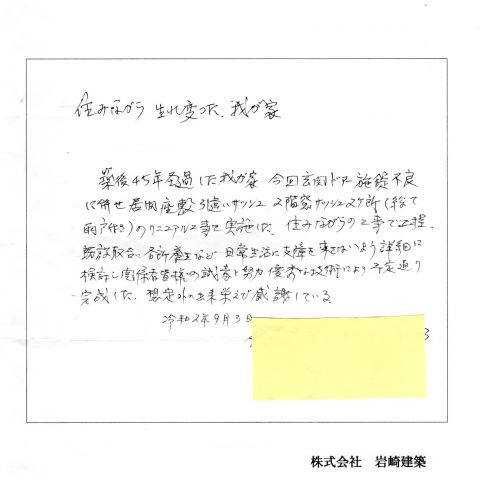 住みながら 生れ変った、我が家
築後45年経過した我が家 今回玄関ドア施錠不良
に併せ居間座敷引違いサッシュ 2階窓サッシュ2ヶ所(全て
雨戸付き)のリニアル工事を実施した、住みながらの工事で工程
、各所養生など 日常生活に支障を来さないよう詳細に
検討し関係者皆様の誠意と努力 優秀な技術により予定通り
完成した、想定外の出来栄えで感謝している
令和2年9月3日
株式会社 岩崎建築